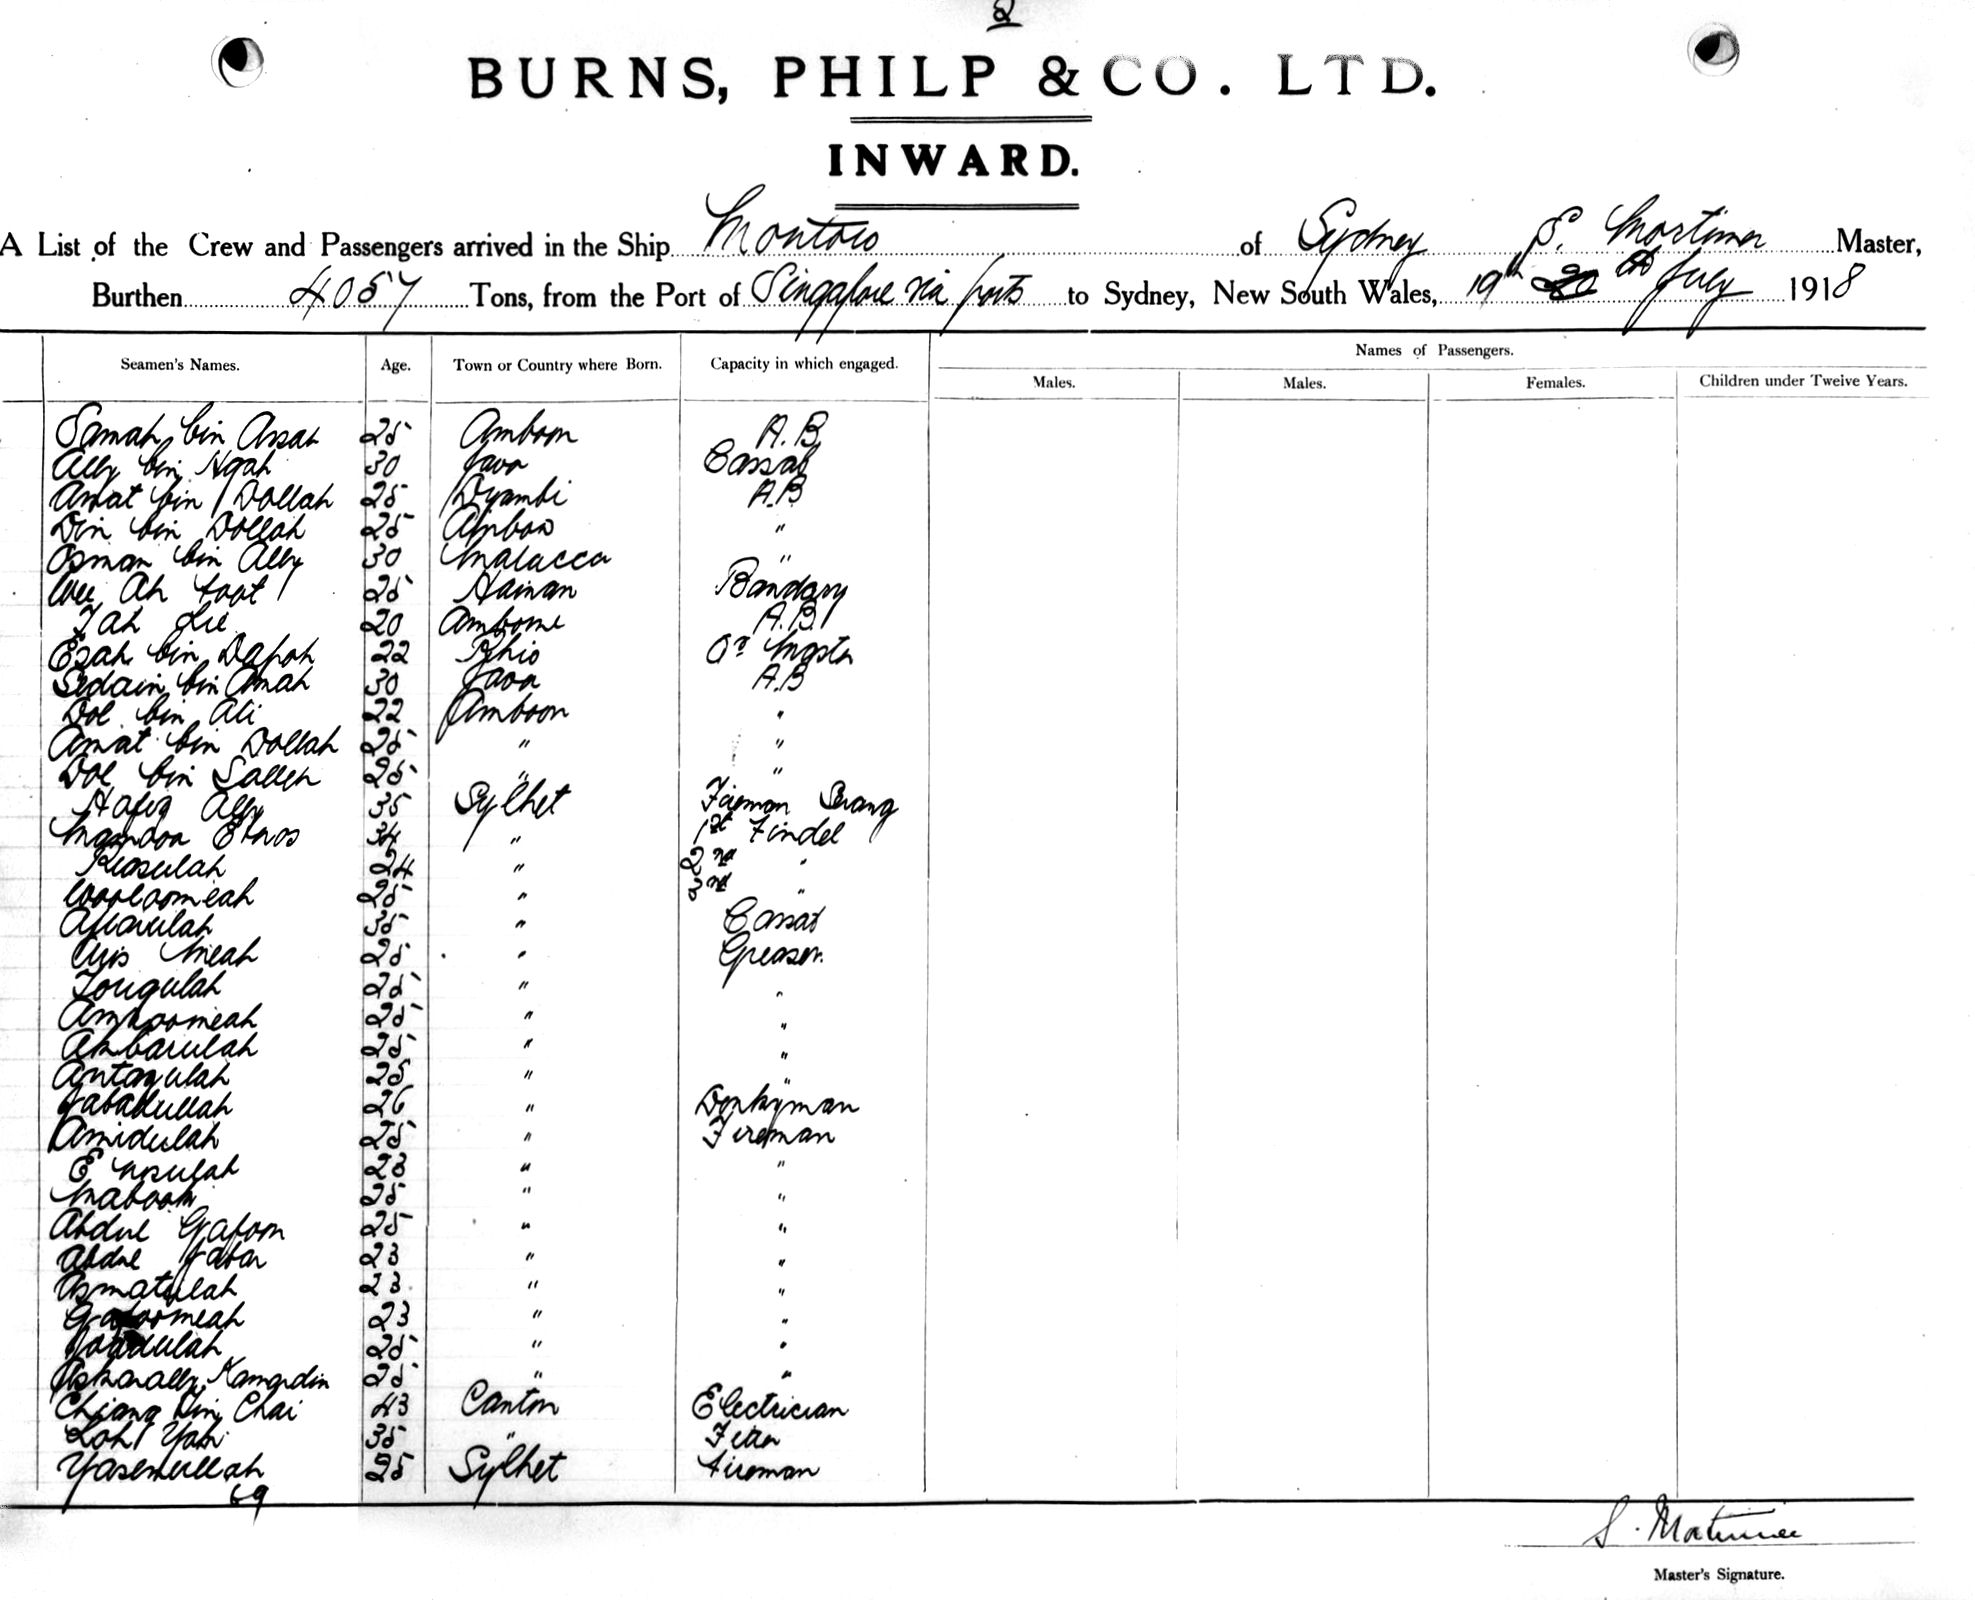 2
BURNS, PHILP & CO. LTD.
INWARD.
A List of the Crew and Passengers arrived in the Ship Montoro of Sydney S. Mortimer Master,
Burthen 4057 Tons, from the Port of Singapore via ports to Sydney, New South Wales, 19th July 1918
Seamen's Names. Age. Town or Country where Born. Capacity in which engaged. Names of Passengers.
Males. Males. Females. Children under Twelve Years.
Samah bin Assah 25 Amboon A.B
Ally bin Ngah 30 Java Cassab
Amat bin Dollah 25 Dyambi A.B
Din bin Dollah 25 Ambon "
Osman bin Ally 30 Malacca "
Wee Ah Foot 25 Hainan Bandary
Tah Lie 20 Ambome A.B
Esah bin Dapoh 22 Rhio Qr Master
Sedain bin Amah 30 Java A.B
Dol bin Ali 22 Amboon "
Amat bin Dollah 25 " "
Dol bin Salleh 25 " "
Hafiq Ally 35 Sylhet Fireman Serang
34 " 1st Tindel
Riasulah 24 " 2nd "
Wooloomeah 25 " 3rd "
35 " Cassab
Meah 25 " Greaser
25 " "
25 " "
Akbarulah 25 " "
25 " "
Jabadullah 26 " Donkyman
Amidulah 25 " Fireman
23 " "
Maboob 25 " "
Abdul Gafoor 25 " "
Abdul Jabar 23 " "
Asmatulah 23 " "
23 " "
25 " "
Askarally Kamardin 25 " "
Chiang Chai 43 Canton Electrician
Loh Yah 35 " Fitter
Yasenullah 25 Sylhet Fireman
69
S. Mortimer
Master's Signature.